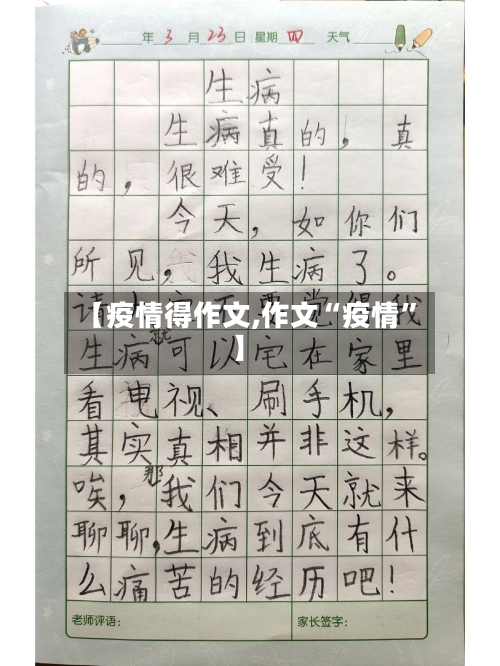 年 3 月 23 日 星期 四 天气
生病
生病真的，真
的，很难受！
今天，如你们
所见，我生病了。
【疫情得作文,作文“疫情”
】
生病就可以宅在家里
看电视、刷手机，
其实真相并非这样。
唉，那我们今天就来
聊聊，生病到底有什
么痛苦的经历吧！
老师评语： 家长签字：